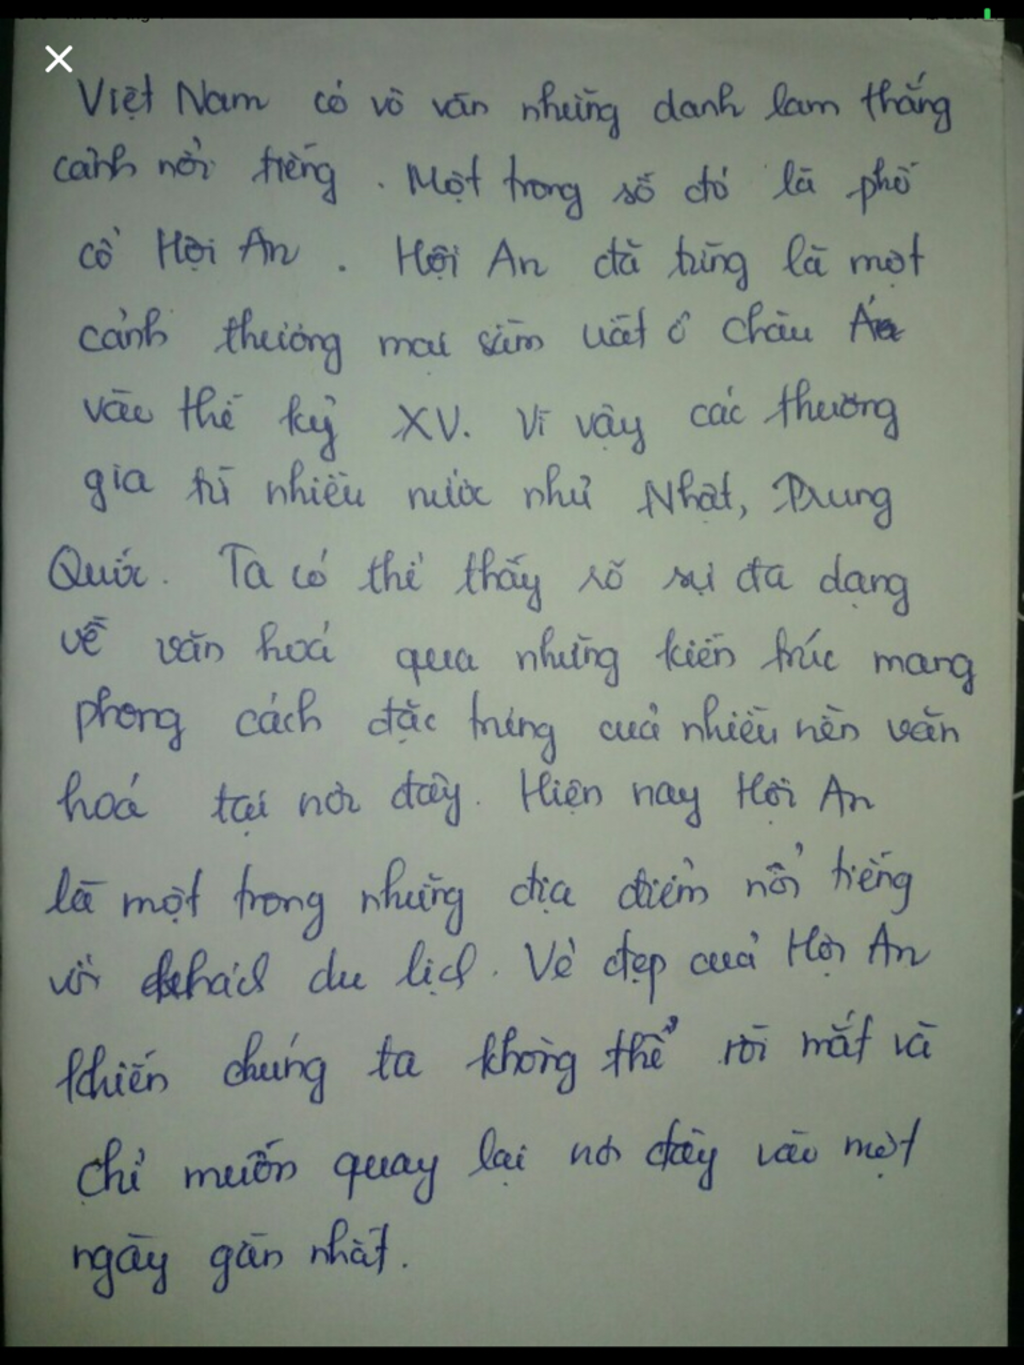 Việt Nam có vô vàn những danh lam thắng
cảnh nổi tiếng. Một trong số đó là phố
cổ Hội An. Hội An đã từng là một
cảnh thương mại sầm uất ở châu Á
vào thế kỷ XV. Vì vậy các thương
gia từ nhiều nước như Nhật, Trung
Quốc. Ta có thể thấy rõ sự đa dạng
về văn hoá qua những kiến trúc mang
phong cách đặc trưng của nhiều nền văn
hoá tại nơi đây. Hiện nay Hội An
là một trong những địa điểm nổi tiếng
với khách du lịch. Vẻ đẹp của Hội An
khiến chúng ta không thể rời mắt và
chỉ muốn quay lại nơi đây vào một
ngày gần nhất.